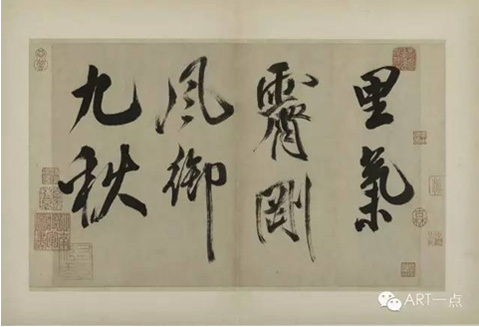 里氣
霽剛
風御
九秋
ART一点